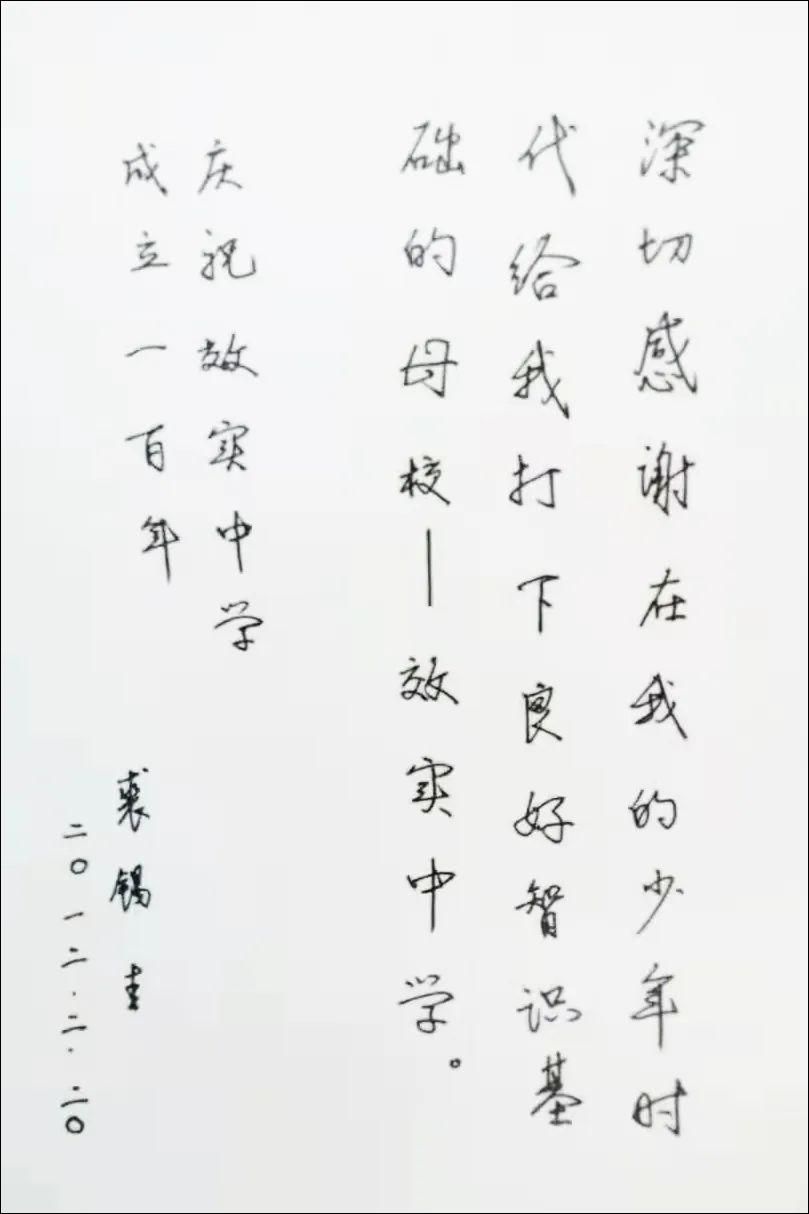 深切感谢在我的少年时
代给我打下良好智识基
础的母校—效实中学。
庆祝效实中学
成立一百年
裘锡圭
二〇一二.二.二〇